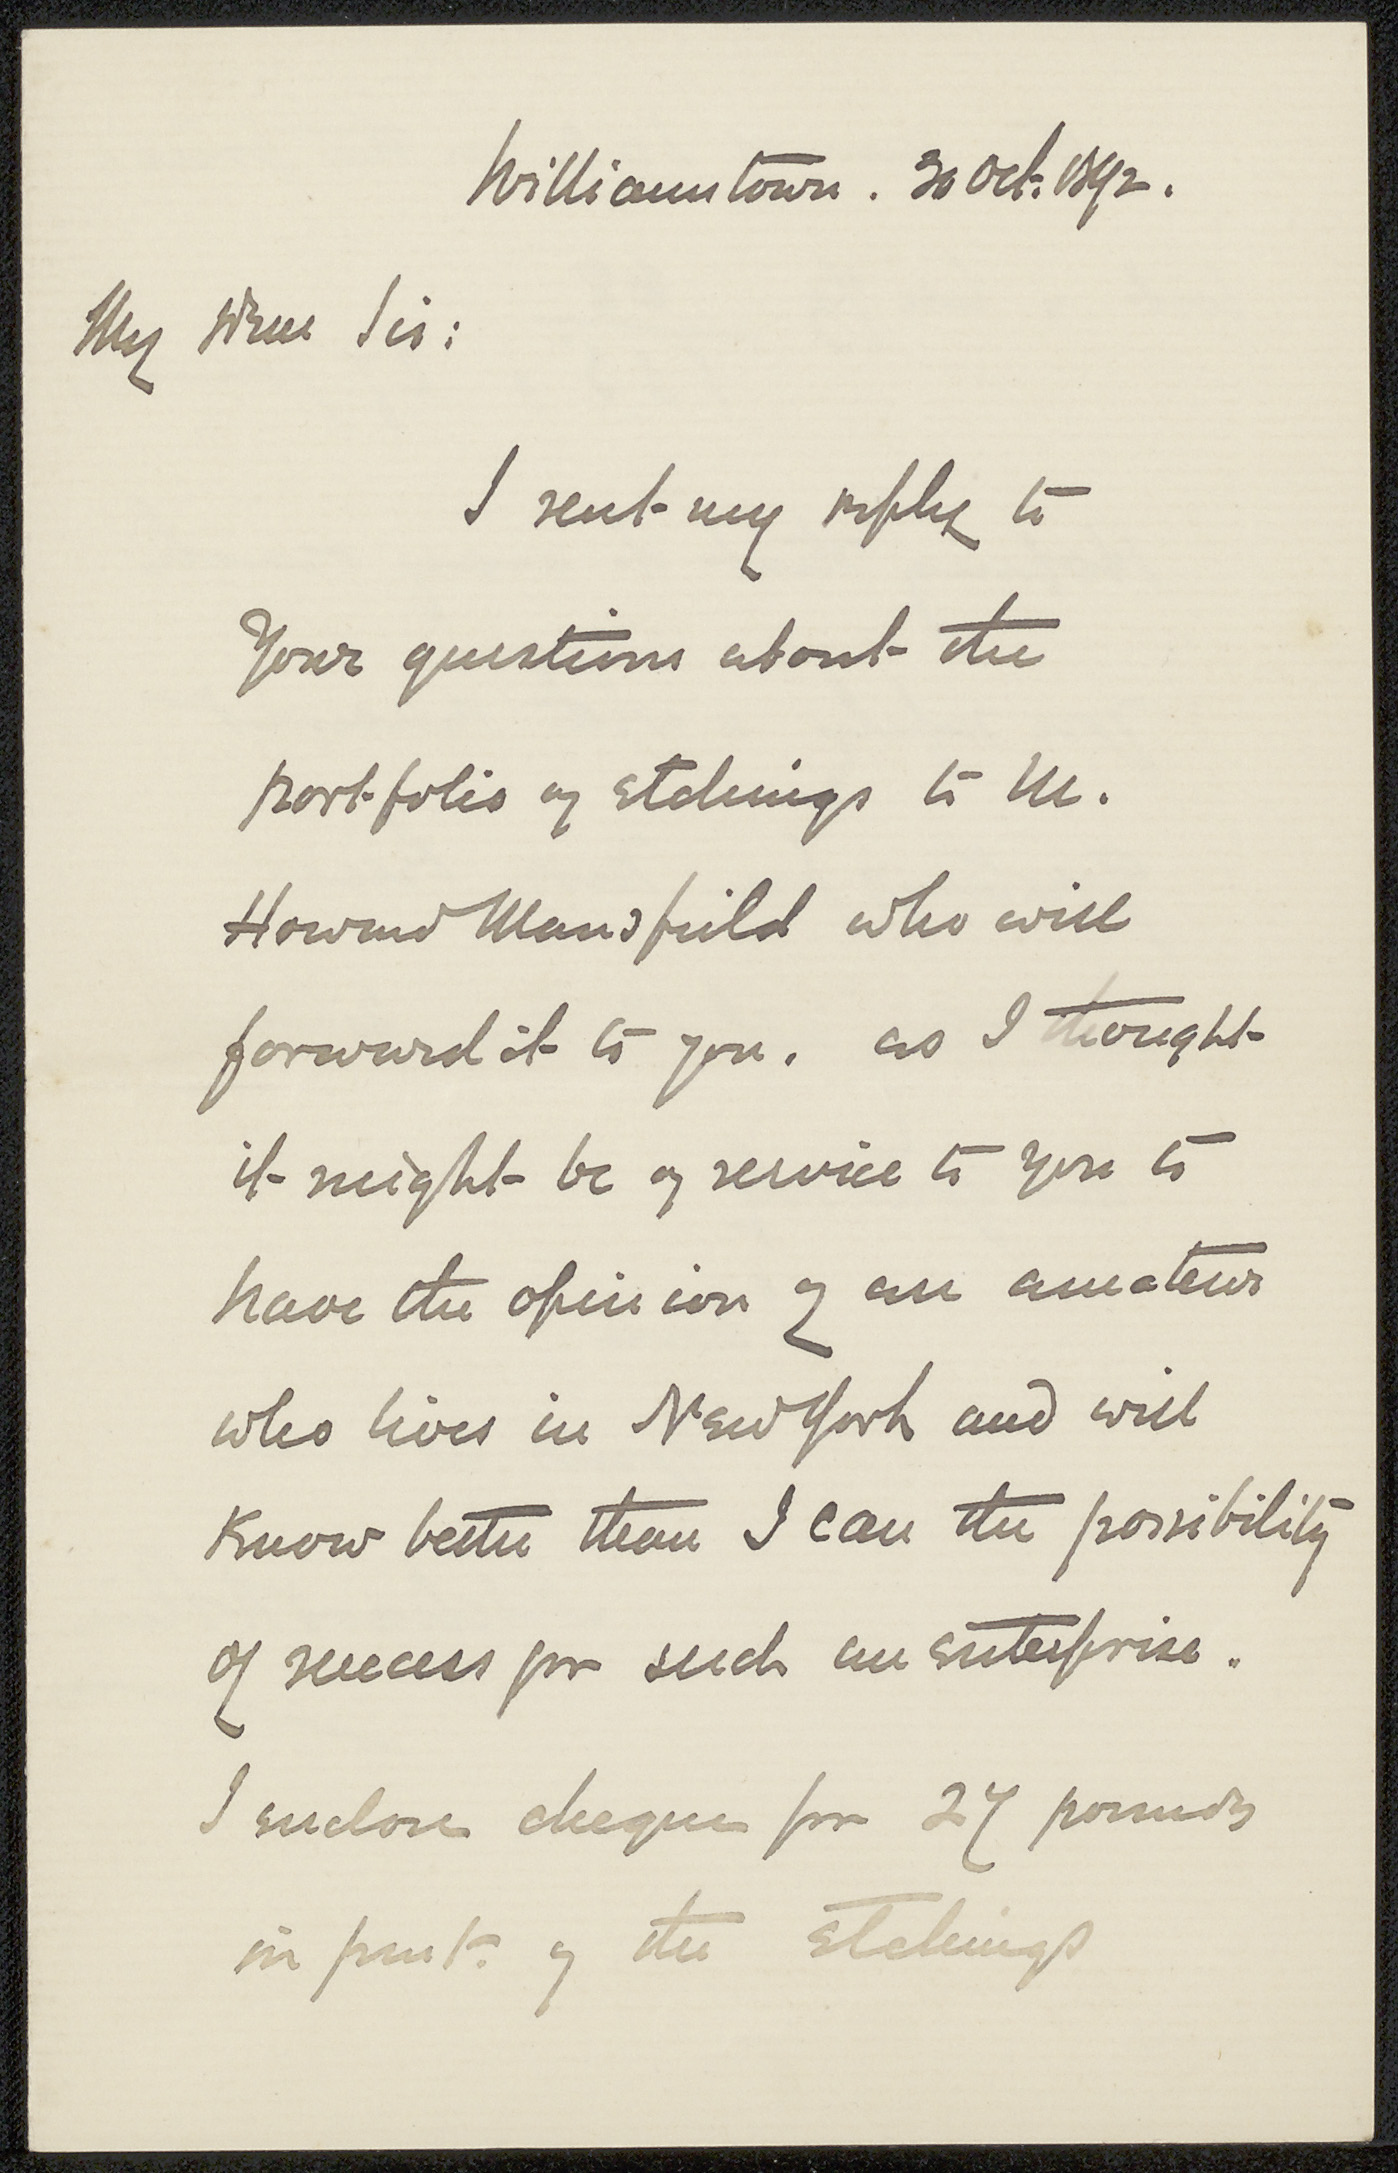 Williamstown. 30 Oct. 1892.
My Dear Sir:
I sent my reply to
Your questions about the
portfolio of etchings to M.
Howard Mansfield who will
forward it to you. as I thought
it might be of service to you to
have the opinion of an amateur
who lives in New York and will
Know better than I can the possibility
of success for such an enterprise.
I enclose cheque for 27 pounds
in paymt. of the etchings